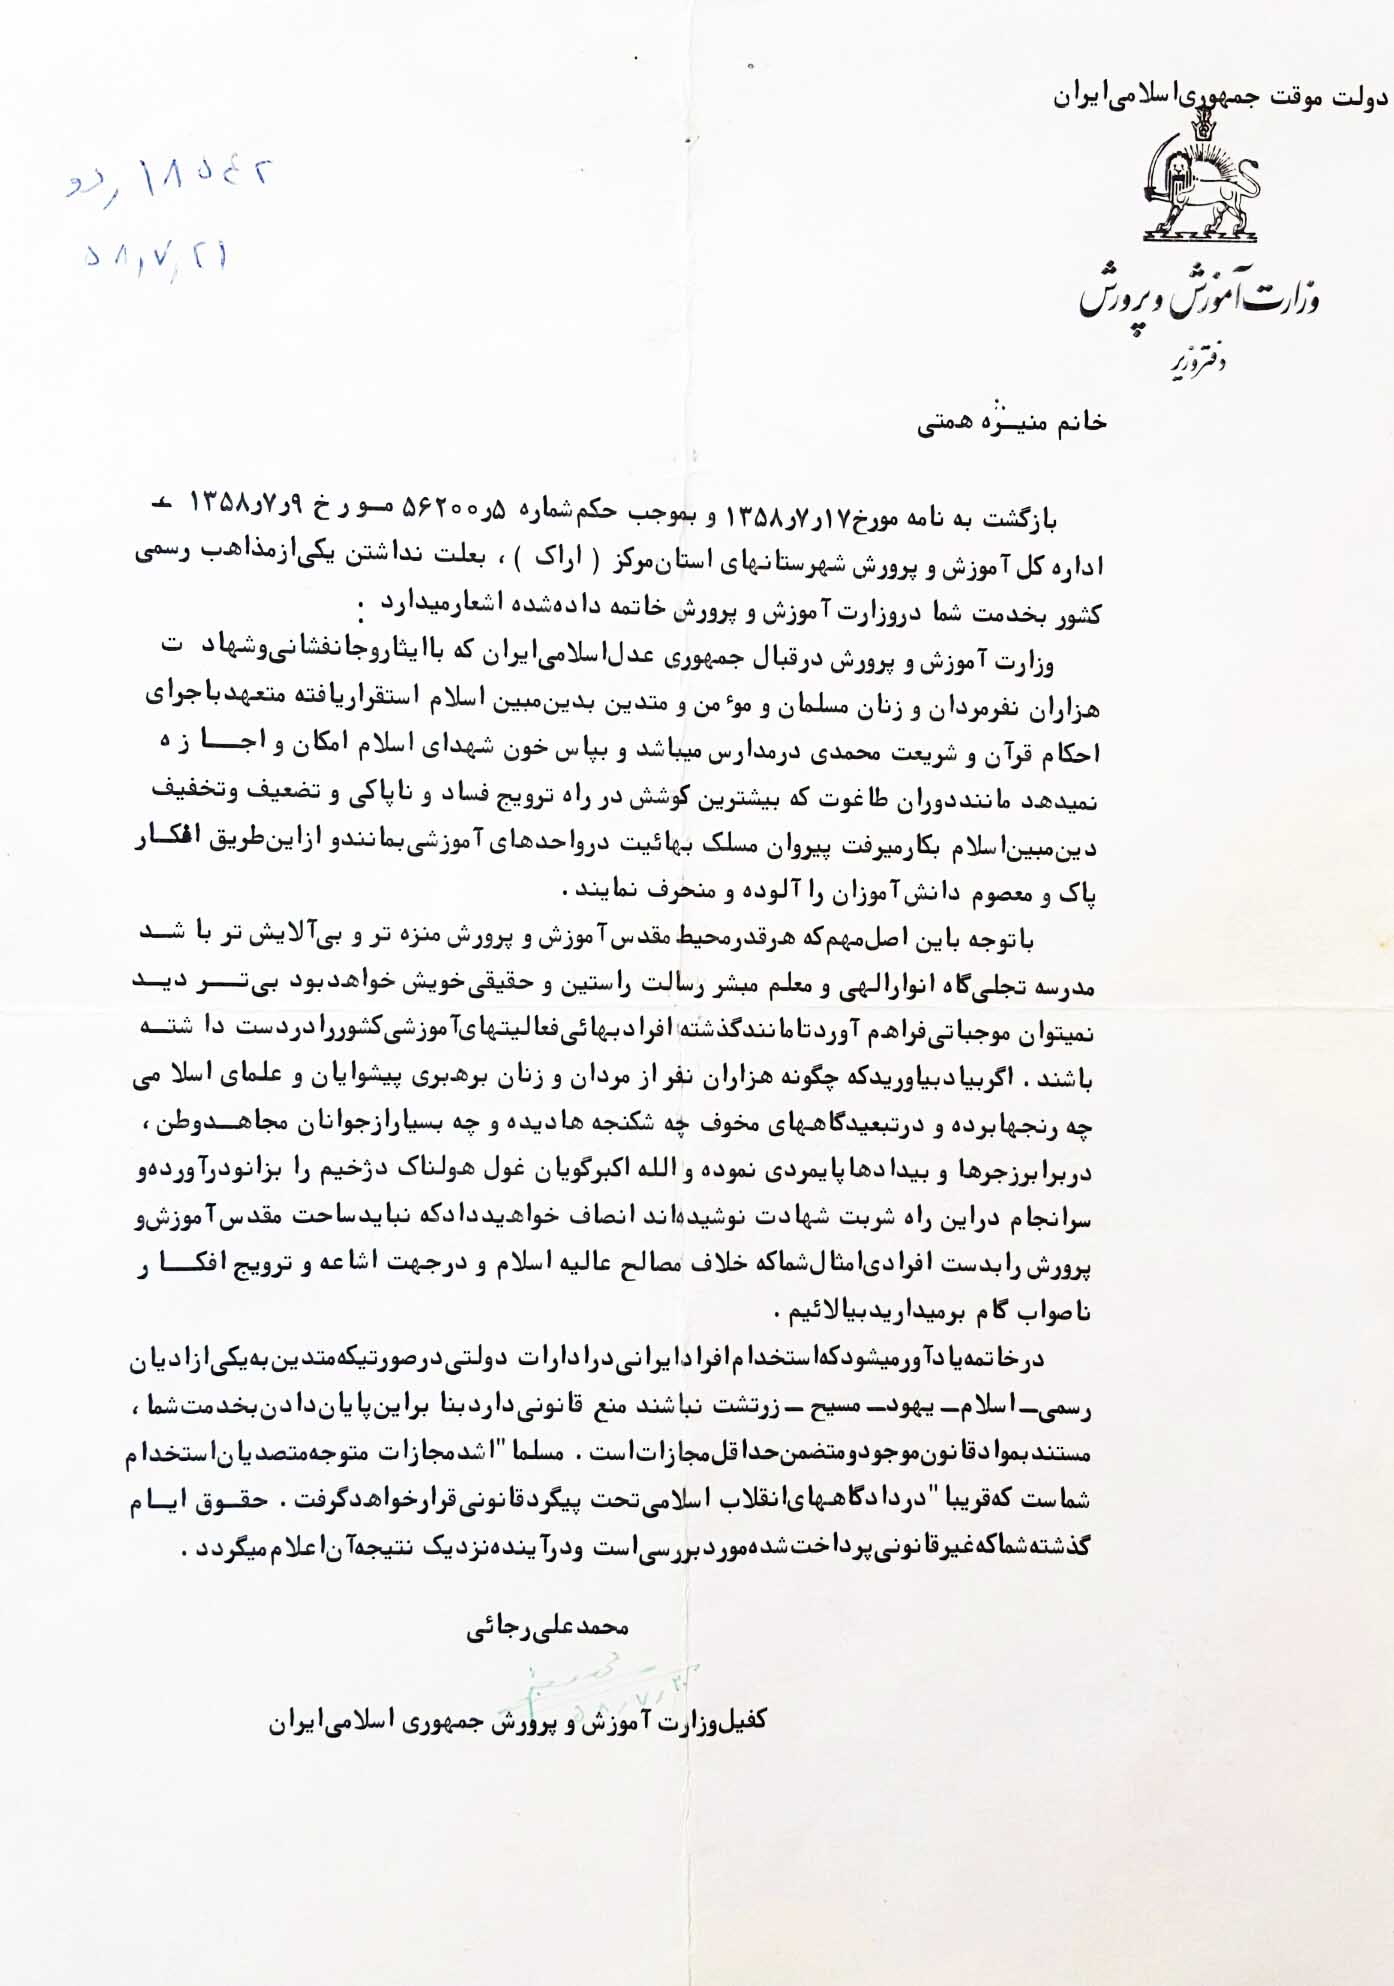 دولت موقت جمهوری اسلامی ایران
۱۸۵۶۲
۵۸٫۷٫۲۱
وزارت آموزش و پرورش
دفتر وزیر
خانم منیژه همتی
بازگشت به نامه مورخ ۱۷ر۷ر۱۳۵۸ و بموجب حکم شماره ۵ر۵۶۲۰۰ مـو ر خ ۹ر۷ر۱۳۵۸
اداره کل آموزش و پرورش شهرستانهای استان مرکز ( اراک ) ، بعلت نداشتن یکی از مذاهب رسمی
کشور بخدمت شما در وزارت آموزش و پرورش خاتمه داده شده اشعار میدارد :
وزارت آموزش و پرورش در قبال جمهوری عدل اسلامی ایران که با ایثار و جانفشانی و شهاد ت
هزاران نفر مردان و زنان مسلمان و موٴ من و متدین بدین مبین اسلام استقرار یافته متعهد باجرای
احکام قرآن و شریعت محمدی در مدارس میباشد و بپاس خون شهدای اسلام امکان و اجـــا ز ه
نمیدهد مانند دوران طاغوت که بیشترین کوشش در راه ترویج فساد و ناپاکی و تضعیف و تخفیف
دین مبین اسلام بکار میرفت پیروان مسلک بهائیت در واحدهای آموزشی بمانند و از این طریق افکـار
پاک و معصوم دانش آموزان را آلوده و منحرف نمایند .
با توجه باین اصل مهم که هر قدر محیط مقدس آموزش و پرورش منزه تر و بی آلایش تر با شـد
مدرسه تجلی گاه انوار الهی و معلم مبشر رسالت راستین و حقیقی خویش خواهد بود بی تـــر دیـد
نمیتوان موجباتی فراهم آورد تا مانند گذشته افراد بهائی فعالیتهای آموزشی کشور را در دست دا شتــه
باشند . اگر بیاد بیاورید که چگونه هزاران نفر از مردان و زنان برهبری پیشوایان و علمای اسلا می
چه رنجها برده و در تبعیدگاههای مخوف چه شکنجه ها دیده و چه بسیار از جوانان مجاهـد وطن ،
در برابر زجرها و بیدادها پایمردی نموده و الله اکبر گویان غول هولناک دژخیم را بزانو در آورده و
سرانجام در این راه شربت شهادت نوشیده اند انصاف خواهید داد که نباید ساحت مقدس آموزش و
پرورش را بدست افرادی امثال شما که خلاف مصالح عالیه اسلام و در جهت اشاعه و ترویج افکـــا ر
ناصواب گام برمیدارید بیالائیم .
در خاتمه یادآور میشود که استخدام افراد ایرانی در ادارات دولتی در صورتیکه متدین به یکی از ادیان
رسمی ـ اسلام ـ یهود ـ مسیح ـ زرتشت نباشند منع قانونی دارد بنا براین پایان دادن بخدمت شما ،
مستند بمواد قانون موجود و متضمن حداقل مجازات است . مسلما " اشد مجازات متوجه متصدیان استخدام
شماست که قریبا " در دادگاههای انقلاب اسلامی تحت پیگرد قانونی قرار خواهد گرفت . حقـوق ایـام
گذشته شما که غیر قانونی پرداخت شده مورد بررسی است و در آینده نزدیک نتیجه آن اعلام میگردد .
محمد علی رجائی
۵۸٫۷٫۲۰
کفیل وزارت آموزش و پرورش جمهوری اسلامی ایران